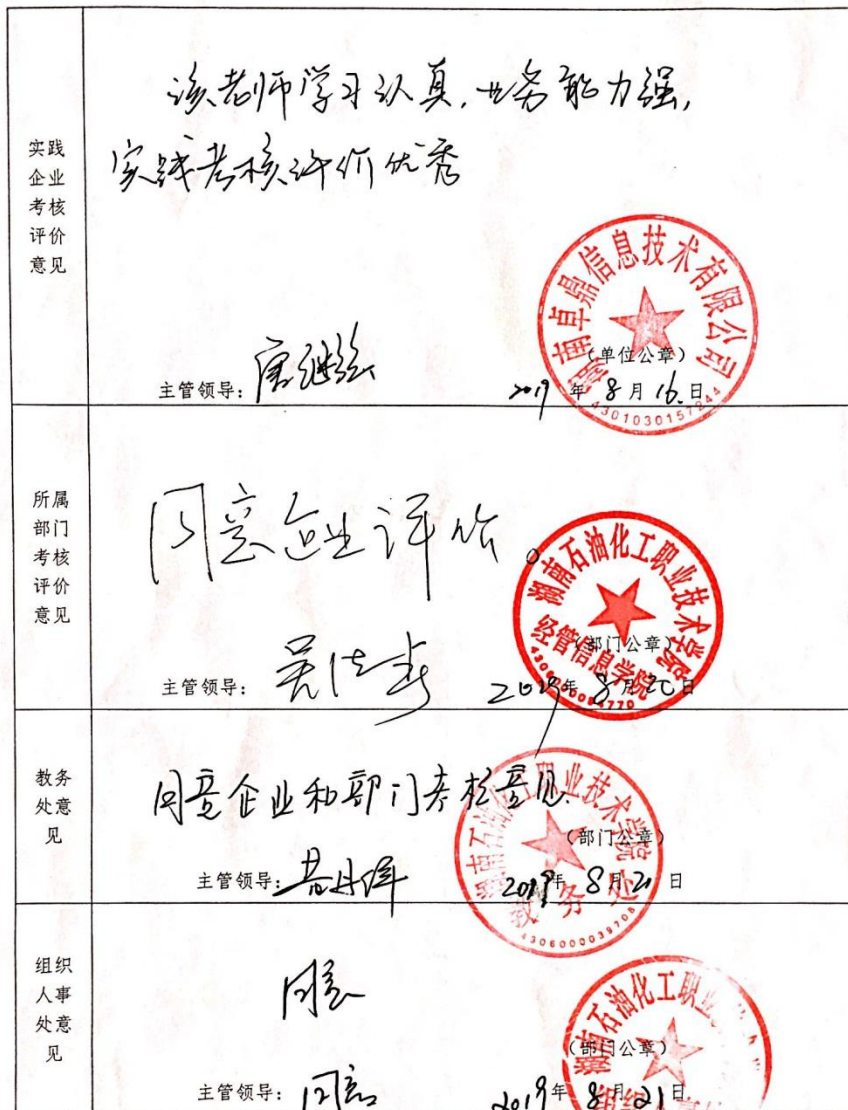 实践
企业
考核
评价
意见
该老师学习认真,业务能力强,
实践考核评价优秀
湖南卓鼎信息技术有限公司
4301030157244
(单位公章)
主管领导:
2019年8月16日
所属
部门
考核
评价
意见
同意企业评价。
湖南石油化工职业技术学院
经管信息学院
(部门公章)
主管领导:
2019年8月20日
教务
处意
见
同意企业和部门考核意见
湖南石油化工职业技术学院
教务处
4306000039708
(部门公章)
主管领导:
2019年8月21日
组织
人事
处意
见
同意
湖南石油化工职业
(部门公章)
主管领导:
2019年8月21日